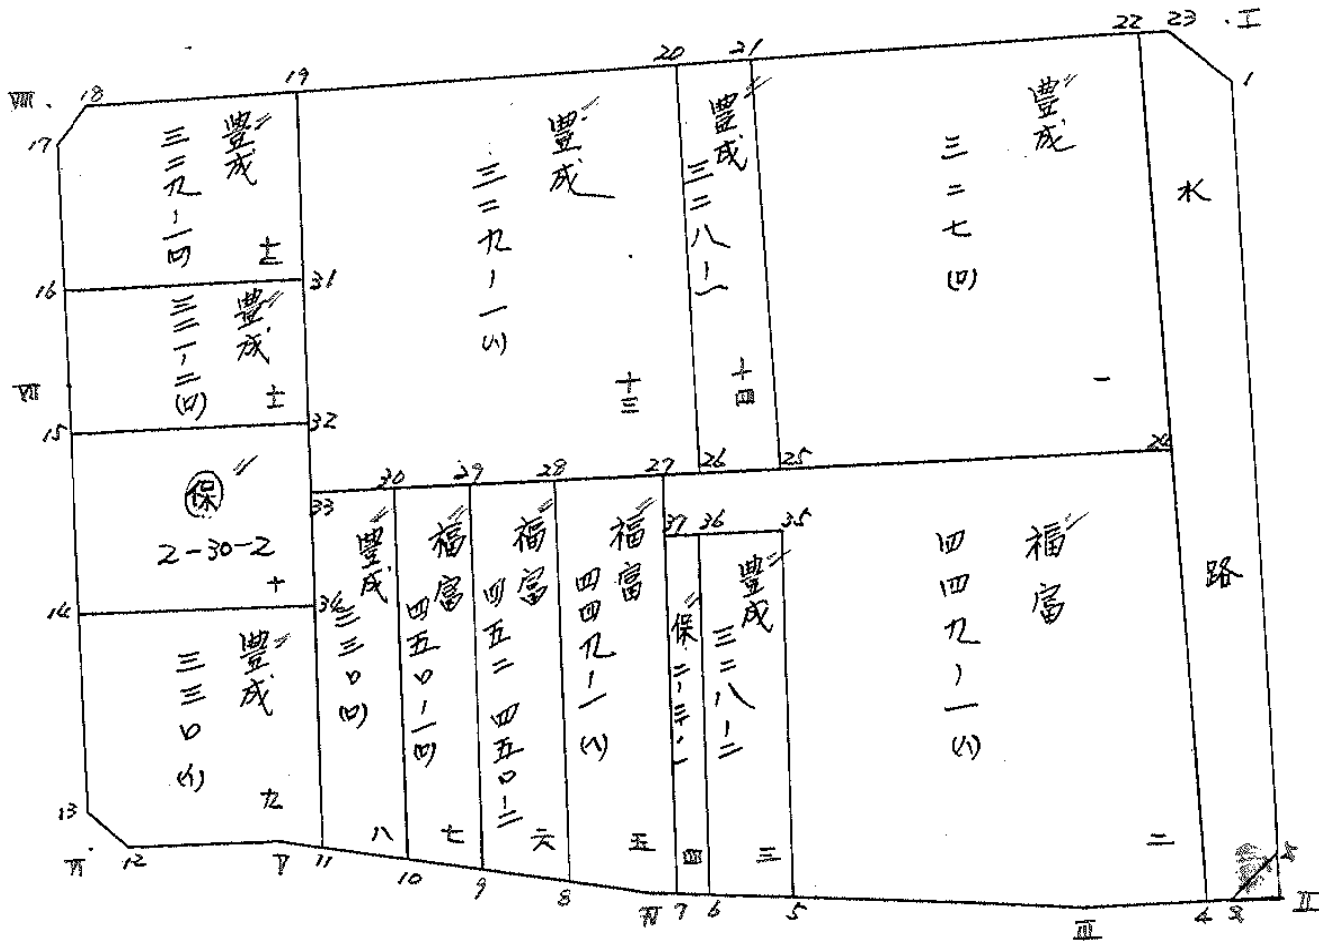 22 23 I
19 20 21 1
VIII 18
17
豊成
三二九-一(ロ)
豊成
三二九-一(ハ)
十三
豊成
三二八-一
十四
豊成
三二七(ロ)
一
水路
16 31
豊成
三二一-二(ロ)
VII
15 32
保
2-30-2
十
33 30 29 28 27 26 25 24
37 36 35
14 34
豊成
三三〇(イ)
九
豊成
三三〇(ロ)
八
福富
四五〇-一(ロ)
七
福富
四五二 四五〇-二
六
福富
四四九-一(ハ)
五
保二-三十-一
四
豊成
三二八-二
三
福富
四四九-一(ハ)
二
13
VI 12 V 11 10 9 8 IV 7 6 5 III 4 II